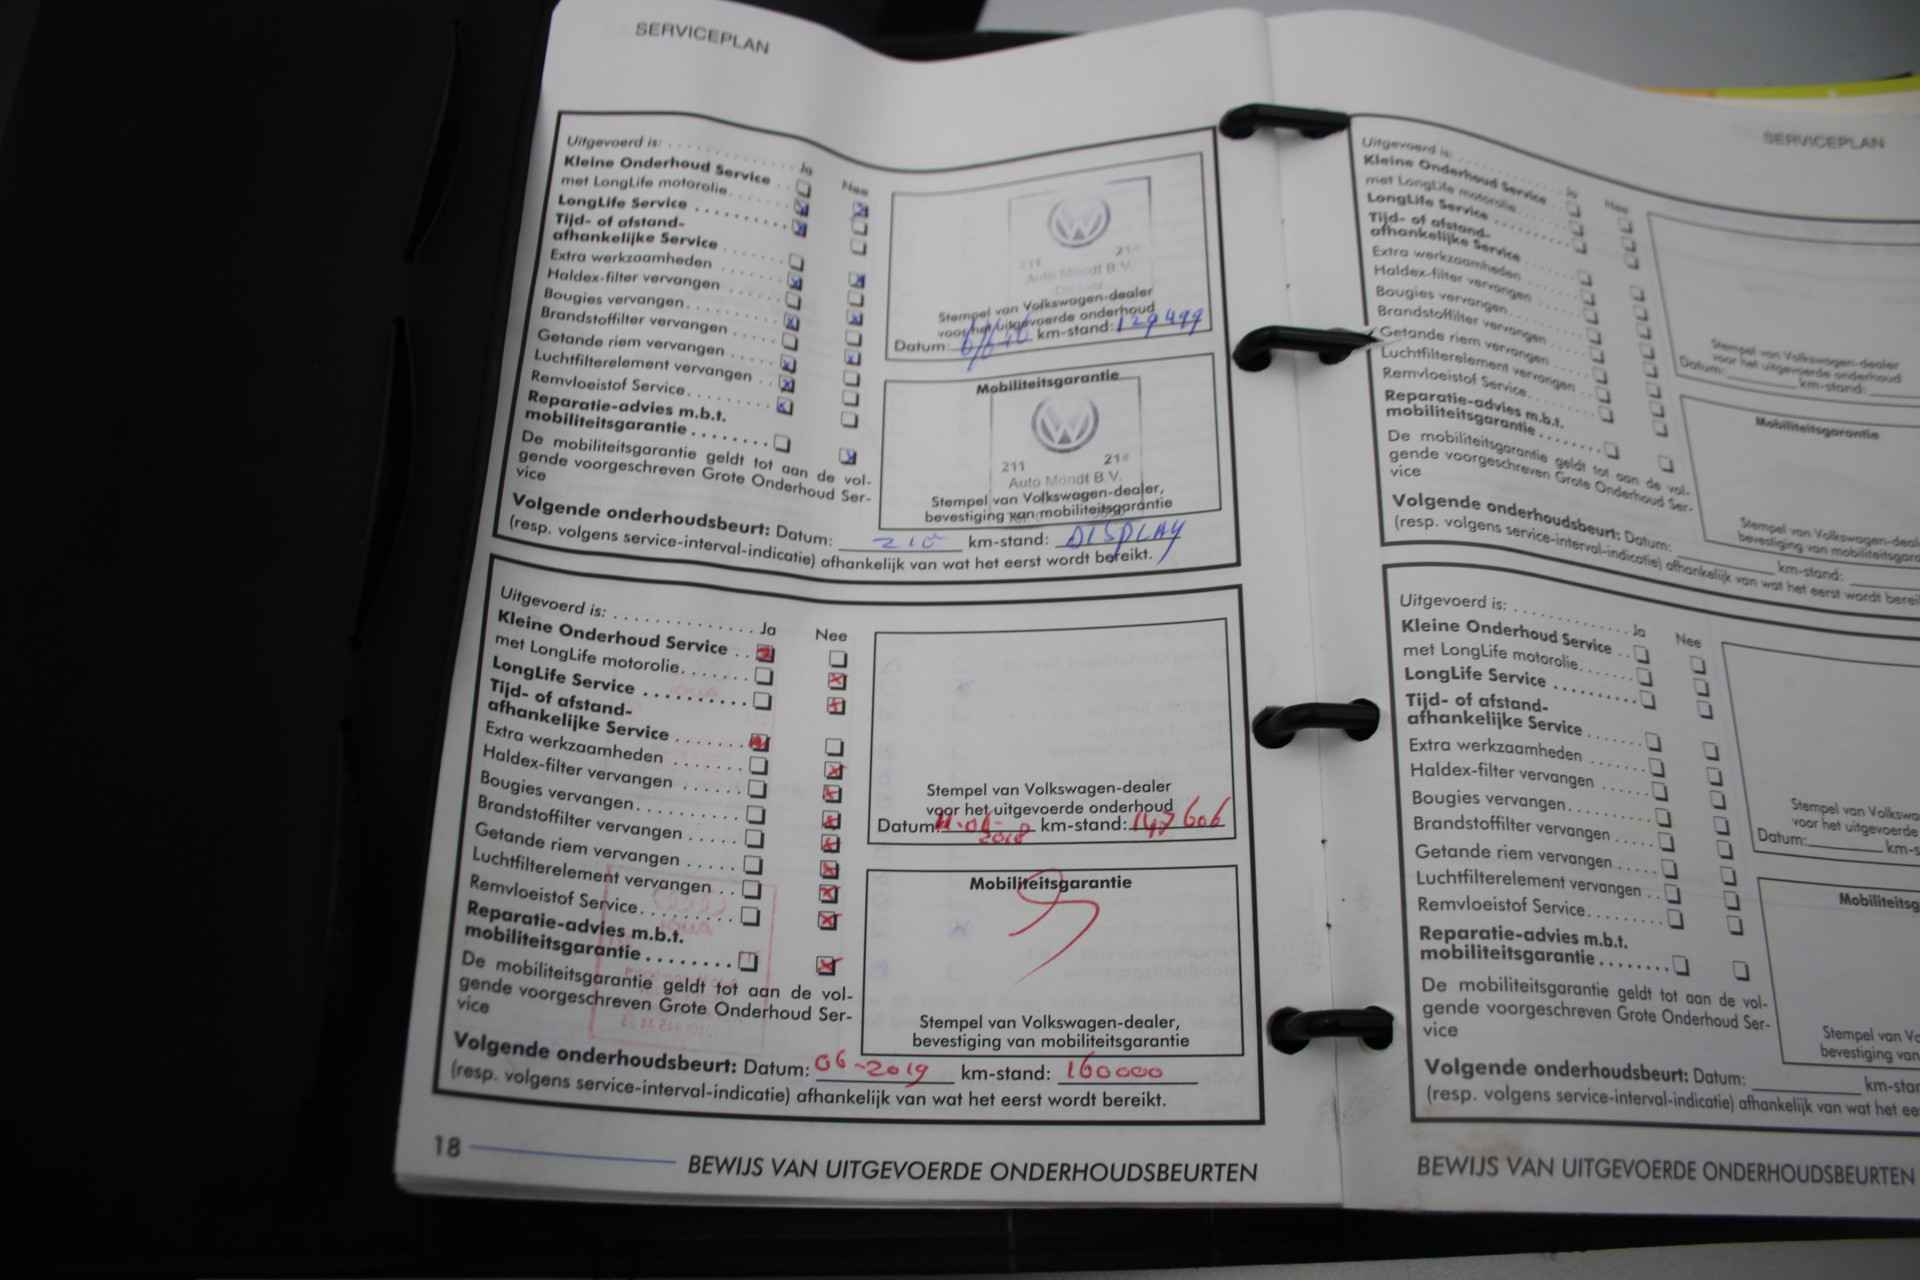 SERVICEPLAN
Uitgevoerd is: . . . . . . . . . . . . . . Ja Nee
Kleine Onderhoud Service . .
met LongLife motorolie. . . . . . .
LongLife Service . . . . . . . . . .
Tijd- of afstand-
afhankelijke Service . . . . . . .
Extra werkzaamheden . . . . . .
Haldex-filter vervangen . . . . . .
Bougies vervangen. . . . . . . . .
Brandstoffilter vervangen . . . . .
Getande riem vervangen . . . . .
Luchtfilterelement vervangen . .
Remvloeistof Service. . . . . . . . .
Reparatie-advies m.b.t.
mobiliteitsgarantie . . . . . . . .
De mobiliteitsgarantie geldt tot aan de vol-
gende voorgeschreven Grote Onderhoud Ser-
vice
211
Auto Mondt B.V.
Stempel van Volkswagen-dealer
voor het uitgevoerde onderhoud
Datum: km-stand: 129499
Mobiliteitsgarantie
211
Auto Mondt B.V.
Stempel van Volkswagen-dealer,
bevestiging van mobiliteitsgarantie
Volgende onderhoudsbeurt: Datum: km-stand: DISPLAY
(resp. volgens service-interval-indicatie) afhankelijk van wat het eerst wordt bereikt.
Uitgevoerd is: . . . . . . . . . . . . . . Ja Nee
Kleine Onderhoud Service . .
met LongLife motorolie. . . . . . .
LongLife Service . . . . . . . . . .
Tijd- of afstand-
afhankelijke Service . . . . . . .
Extra werkzaamheden . . . . . .
Haldex-filter vervangen . . . . . .
Bougies vervangen. . . . . . . . .
Brandstoffilter vervangen . . . . .
Getande riem vervangen . . . . .
Luchtfilterelement vervangen . .
Remvloeistof Service. . . . . . . . .
Reparatie-advies m.b.t.
mobiliteitsgarantie . . . . . . . .
De mobiliteitsgarantie geldt tot aan de vol-
gende voorgeschreven Grote Onderhoud Ser-
vice
Stempel van Volkswagen-dealer
voor het uitgevoerde onderhoud
Datum: km-stand: 147606
2018
Mobiliteitsgarantie
Stempel van Volkswagen-dealer,
bevestiging van mobiliteitsgarantie
Volgende onderhoudsbeurt: Datum: 06-2019 km-stand: 160000
(resp. volgens service-interval-indicatie) afhankelijk van wat het eerst wordt bereikt.
18
BEWIJS VAN UITGEVOERDE ONDERHOUDSBEURTEN
SERVICEPLAN
Uitgevoerd is: . . . . . . . . . . . . . . Ja Nee
Kleine Onderhoud Service
met LongLife motorolie. . . . . . .
LongLife Service . . . . . . . . . .
Tijd- of afstand-
afhankelijke Service . . . . . . .
Extra werkzaamheden . . . . . .
Haldex-filter vervangen . . . . . .
Bougies vervangen. . . . . . . . .
Brandstoffilter vervangen . . . . .
Getande riem vervangen . . . . .
Luchtfilterelement vervangen . .
Remvloeistof Service. . . . . . . . .
Reparatie-advies m.b.t.
mobiliteitsgarantie . . . . . . . .
De mobiliteitsgarantie geldt tot aan de vol-
gende voorgeschreven Grote Onderhoud Ser-
vice
Stempel van Volkswagen-dealer
voor het uitgevoerde onderhoud
Datum: km-stand:
Mobiliteitsgarantie
Stempel van Volkswagen-deal
bevestiging van mobiliteitsgaran
Volgende onderhoudsbeurt: Datum: km-stand:
(resp. volgens service-interval-indicatie) afhankelijk van wat het eerst wordt berei
Uitgevoerd is: . . . . . . . . . . . . . . Ja Nee
Kleine Onderhoud Service . .
met LongLife motorolie. . . . . . .
LongLife Service . . . . . . . . . .
Tijd- of afstand-
afhankelijke Service . . . . . . .
Extra werkzaamheden . . . . . .
Haldex-filter vervangen . . . . . .
Bougies vervangen. . . . . . . . .
Brandstoffilter vervangen . . . . .
Getande riem vervangen . . . . .
Luchtfilterelement vervangen . .
Remvloeistof Service. . . . . . . . .
Reparatie-advies m.b.t.
mobiliteitsgarantie . . . . . . . .
De mobiliteitsgarantie geldt tot aan de vol-
gende voorgeschreven Grote Onderhoud Ser-
vice
Stempel van Volkswa
voor het uitgevoerde
Datum: km-s
Mobiliteitsg
Stempel van Vo
bevestiging van
Volgende onderhoudsbeurt: Datum: km-sta
(resp. volgens service-interval-indicatie) afhankelijk van wat het ee
BEWIJS VAN UITGEVOERDE ONDERHOUDSBEURTEN